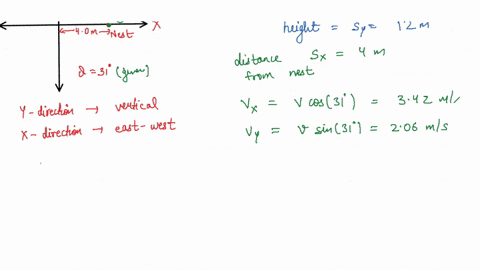 X
4.0m
Nest
θ = 31° (given)
Y-direction → vertical
X-direction → east-west
height = Sy = 1.2 m
distance Sx = 4 m
from nest
Vx = V cos(31°) = 3.42 m/s
Vy = V sin(31°) = 2.06 m/s